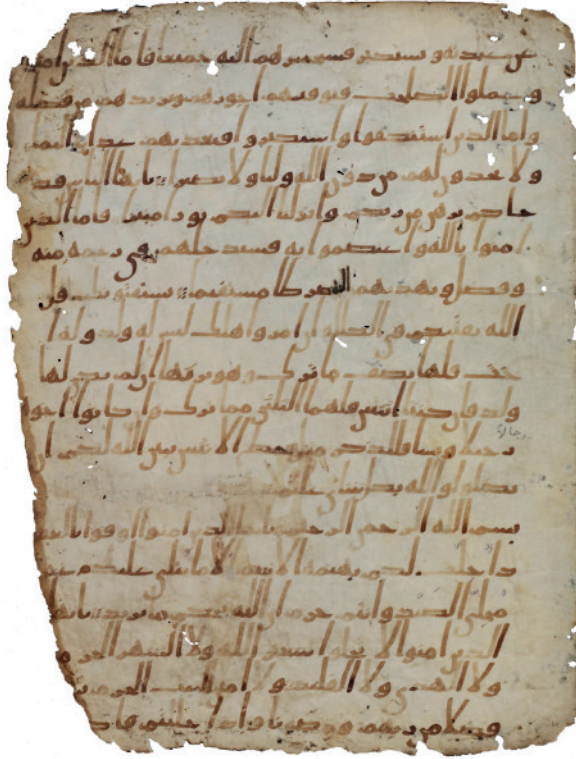 عن عبدته ويستكبر فسيحشرهم اليه جميعا فاما الذين امنوا
وعملوا الصلحت فيوفيهم اجورهم ويزيدهم من فضله
واما الذين استنكفوا واستكبروا فيعذبهم عذابا اليما
ولا يجدون لهم من دون الله وليا ولا نصيرا يايها الناس قد
جاكم برهن من ربكم وانزلنا اليكم نورا مبينا فاما الذين
امنوا بالله واعتصموا به فسيدخلهم في رحمه منه
وفضل ويهديهم اليه صرطا مستقيما يستفتونك قل
الله يفتيكم في الكلله ان امروا هلك ليس له ولد وله ا
خت فلها نصف ما ترك وهو يرثها ان لم يكن لها
ولد فان كانتا اثنتين فلهما الثلثين مما ترك وان كانوا اخو
رجلا ونسا فللذكر مثل حظ الانثيين يبين الله لكم ان
تضلوا والله بكل شاي عليم
بسم الله الرحمن الرحيم يايها الذين امنوا اوفوا بالعقـ
ـد احلت لكم بهيمه الانعم الا ما يتلى عليكم غير
محلي الصيد وانتم حرم ان الله يحكم ما يريد يايها
الذين امنوا لا تحلوا شعير الله ولا الشهر الحرم
ولا الهدي ولا القليد ولا امين البيت الحرم يبتـ
فضلا من ربهم ورضونا واذا حللتم فاصـ